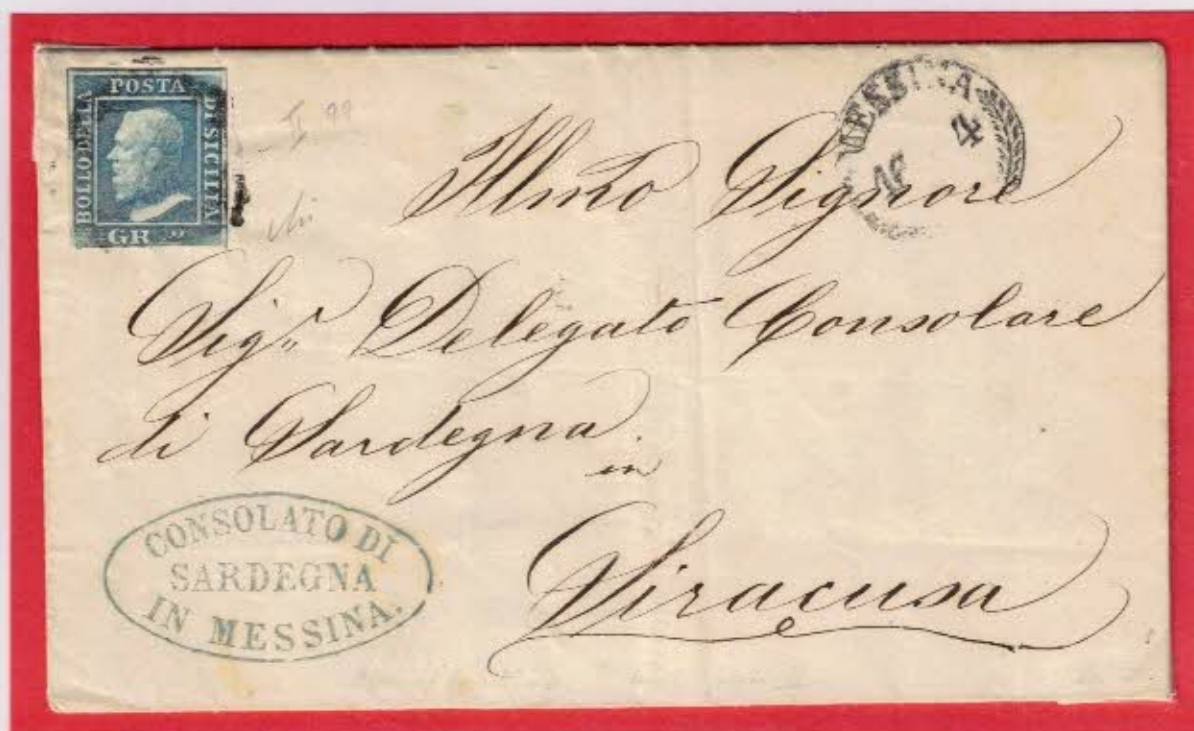 POSTA
BOLLO DELLA
DI SICILIA
GR 2
II 99
MESSINA
4
Illmo Signore
Sigr Delegato Consolare
di Sardegna
in
Siracusa
CONSOLATO DI
SARDEGNA
IN MESSINA.